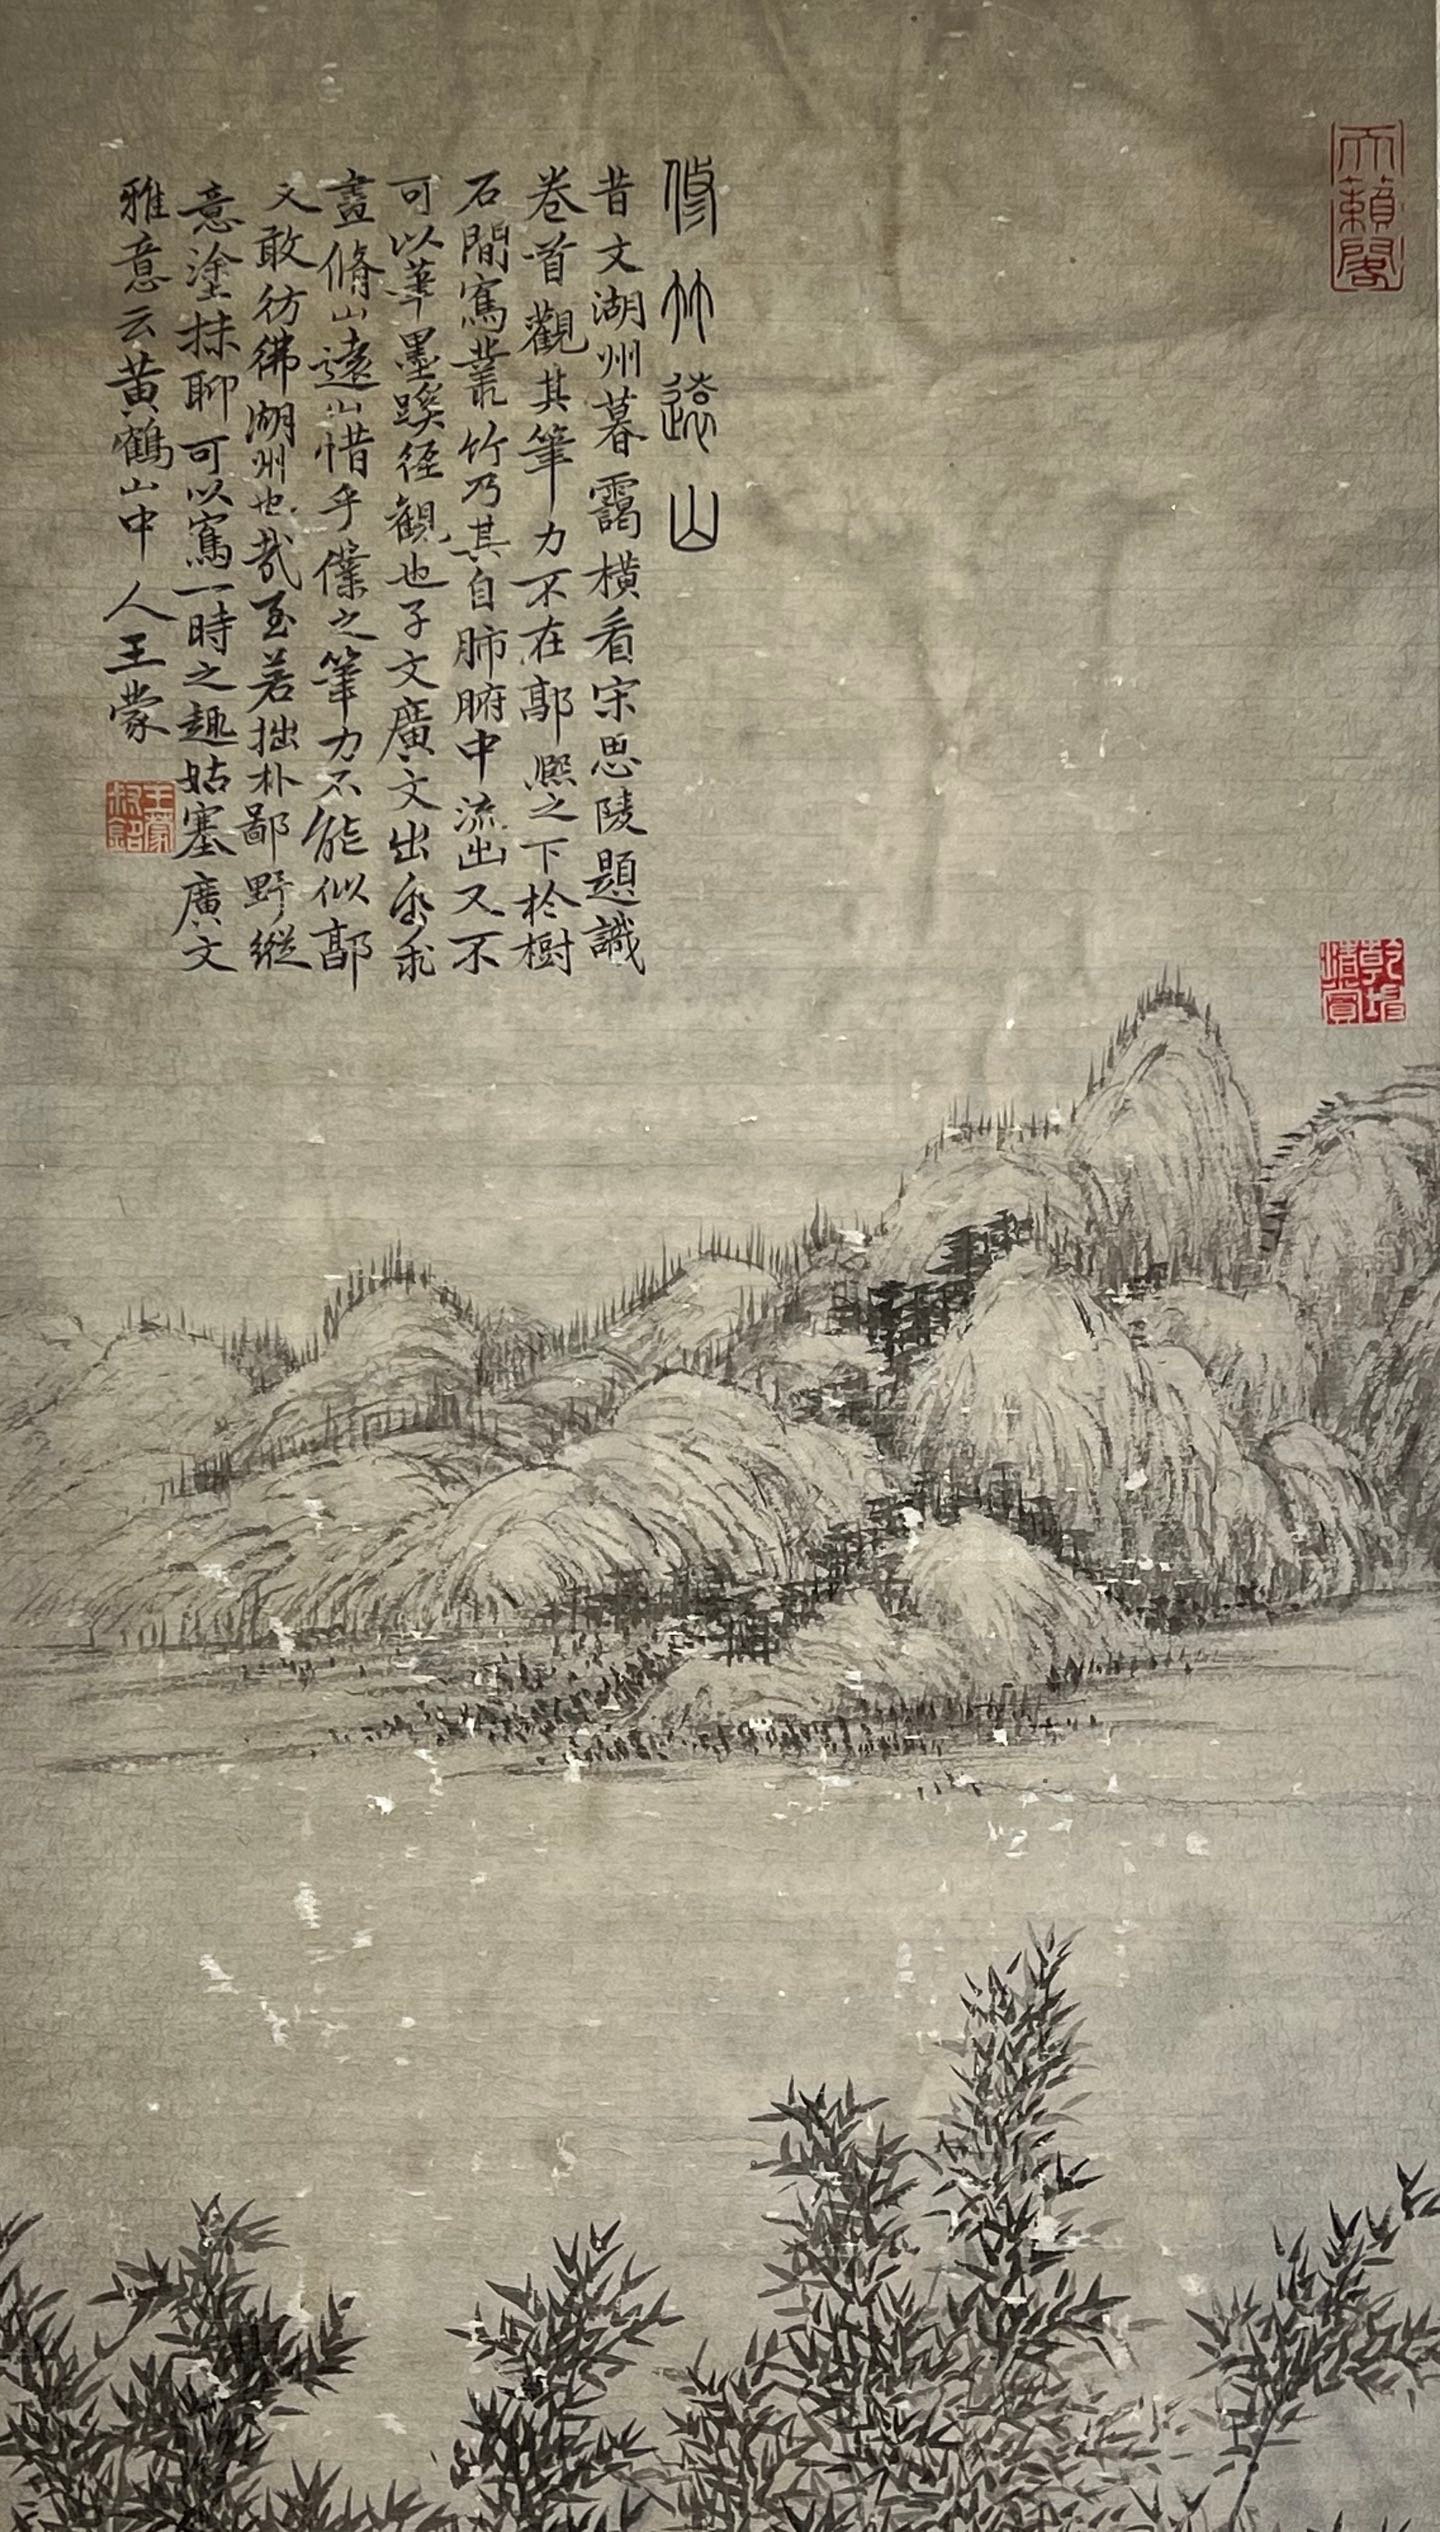 修竹遠山
昔文湖州暮靄橫看宋思陵題識
卷首觀其筆力不在郭熙之下於樹
石間寫叢竹乃其自肺腑中流出又不
可以筆墨蹊徑觀也子文廣文出紙求
畫脩山遠山惜乎僕之筆力不能似郭
又敢彷彿湖州也哉至若拙朴鄙野縱
意塗抹聊可以寫一時之趣姑塞廣文
雅意云黃鶴山中人王蒙
王蒙
天籟閣